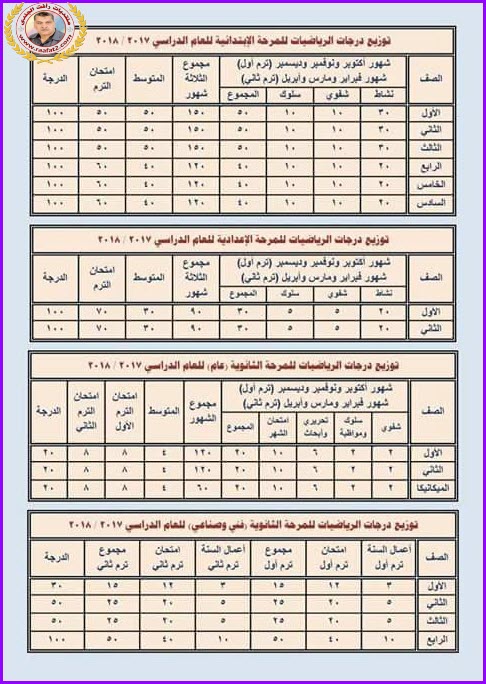 منتديات رأفت الحسيني
www.raafatz.com
توزيع درجات الرياضيات للمرحلة الإبتدائية للعام الدراسي ٢٠١٧ / ٢٠١٨
الصف شهور أكتوبر ونوفمبر وديسمبر (ترم أول) شهور فبراير ومارس وأبريل (ترم ثاني) مجموع الثلاثة شهور المتوسط امتحان الترم الدرجة
نشاط شفوي سلوك المجموع
الأول ٣٠ ١٠ ١٠ ٥٠ ١٥٠ ٥٠ ٥٠ ١٠٠
الثاني ٣٠ ١٠ ١٠ ٥٠ ١٥٠ ٥٠ ٥٠ ١٠٠
الثالث ٣٠ ١٠ ١٠ ٥٠ ١٥٠ ٥٠ ٥٠ ١٠٠
الرابع ٢٠ ١٠ ١٠ ٤٠ ١٢٠ ٤٠ ٦٠ ١٠٠
الخامس ٢٠ ١٠ ١٠ ٤٠ ١٢٠ ٤٠ ٦٠ ١٠٠
السادس ٢٠ ١٠ ١٠ ٤٠ ١٢٠ ٤٠ ٦٠ ١٠٠
توزيع درجات الرياضيات للمرحة الإعدادية للعام الدراسي ٢٠١٧ / ٢٠١٨
الصف شهور أكتوبر ونوفمبر وديسمبر (ترم أول) شهور فبراير ومارس وأبريل (ترم ثاني) مجموع الثلاثة شهور المتوسط امتحان الترم الدرجة
نشاط شفوي سلوك المجموع
الأول ٢٠ ٥ ٥ ٣٠ ٩٠ ٣٠ ٧٠ ١٠٠
الثاني ٢٠ ٥ ٥ ٣٠ ٩٠ ٣٠ ٧٠ ١٠٠
توزيع درجات الرياضيات للمرحة الثانوية (عام) للعام الدراسي ٢٠١٧ / ٢٠١٨
الصف شهور أكتوبر ونوفمبر وديسمبر (ترم أول) شهور فبراير ومارس وأبريل (ترم ثاني) مجموع الشهور المتوسط امتحان الترم الأول امتحان الترم الثاني الدرجة
شفوي سلوك ومواظبة تحريري وأبحاث امتحان الشهر المجموع
الأول ٢ ٢ ٦ ١٠ ٢٠ ١٢٠ ٤ ٨ ٨ ٢٠
الثاني ٢ ٢ ٦ ١٠ ٢٠ ١٢٠ ٤ ٨ ٨ ٢٠
الميكانيكا ٢ ٢ ٦ ١٠ ٢٠ ٦٠ ٤ ٨ ٨ ٢٠
توزيع درجات الرياضيات للمرحة الثانوية (فني وصناعي) للعام الدراسي ٢٠١٧ / ٢٠١٨
الصف أعمال السنة ترم أول امتحان ترم أول مجموع ترم أول أعمال السنة ترم ثاني امتحان ترم ثاني مجموع ترم ثاني الدرجة
الأول ٣ ١٢ ١٥ ٣ ١٢ ١٥ ٣٠
الثاني ٥ ٢٠ ٢٥ ٥ ٢٠ ٢٥ ٥٠
الثالث ٥ ٢٠ ٢٥ ٥ ٢٠ ٢٥ ٥٠
الرابع ١٠ ٤٠ ٥٠ ١٠ ٤٠ ٥٠ ١٠٠